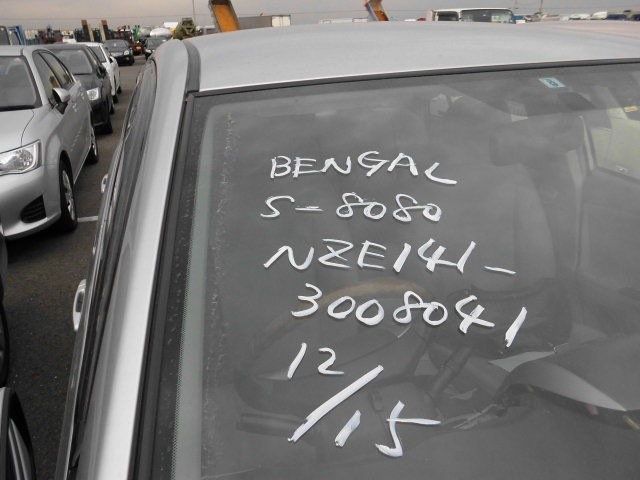 BENGAL
S-8080
NZE141-
3008041
12/15